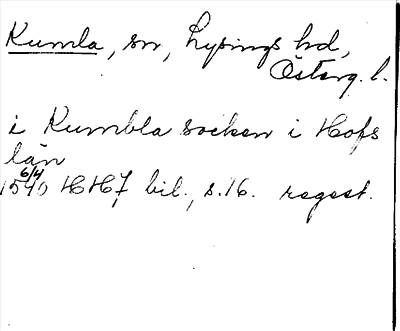 Kumla, sn, Lysings hd,
Österg. l.
i Kumbla socken i Hofs
län
6/4
1540 HH7 bil., s. 16. regest.